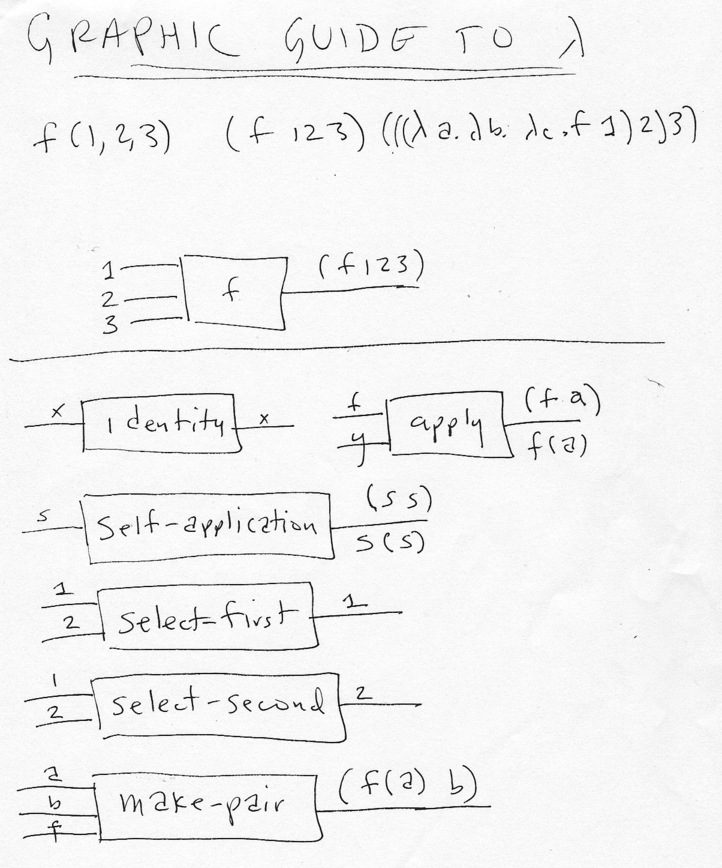 GRAPHIC GUIDE TO λ
f(1,2,3) (f 123) (((λa.λb.λc.f 1)2)3)
1
2
3
f
(f123)
x identity x
f
y
apply
(f a)
f(a)
s
self-application
(s s)
s(s)
1
2
select-first
1
1
2
select-second
2
a
b
f
make-pair
(f(a) b)